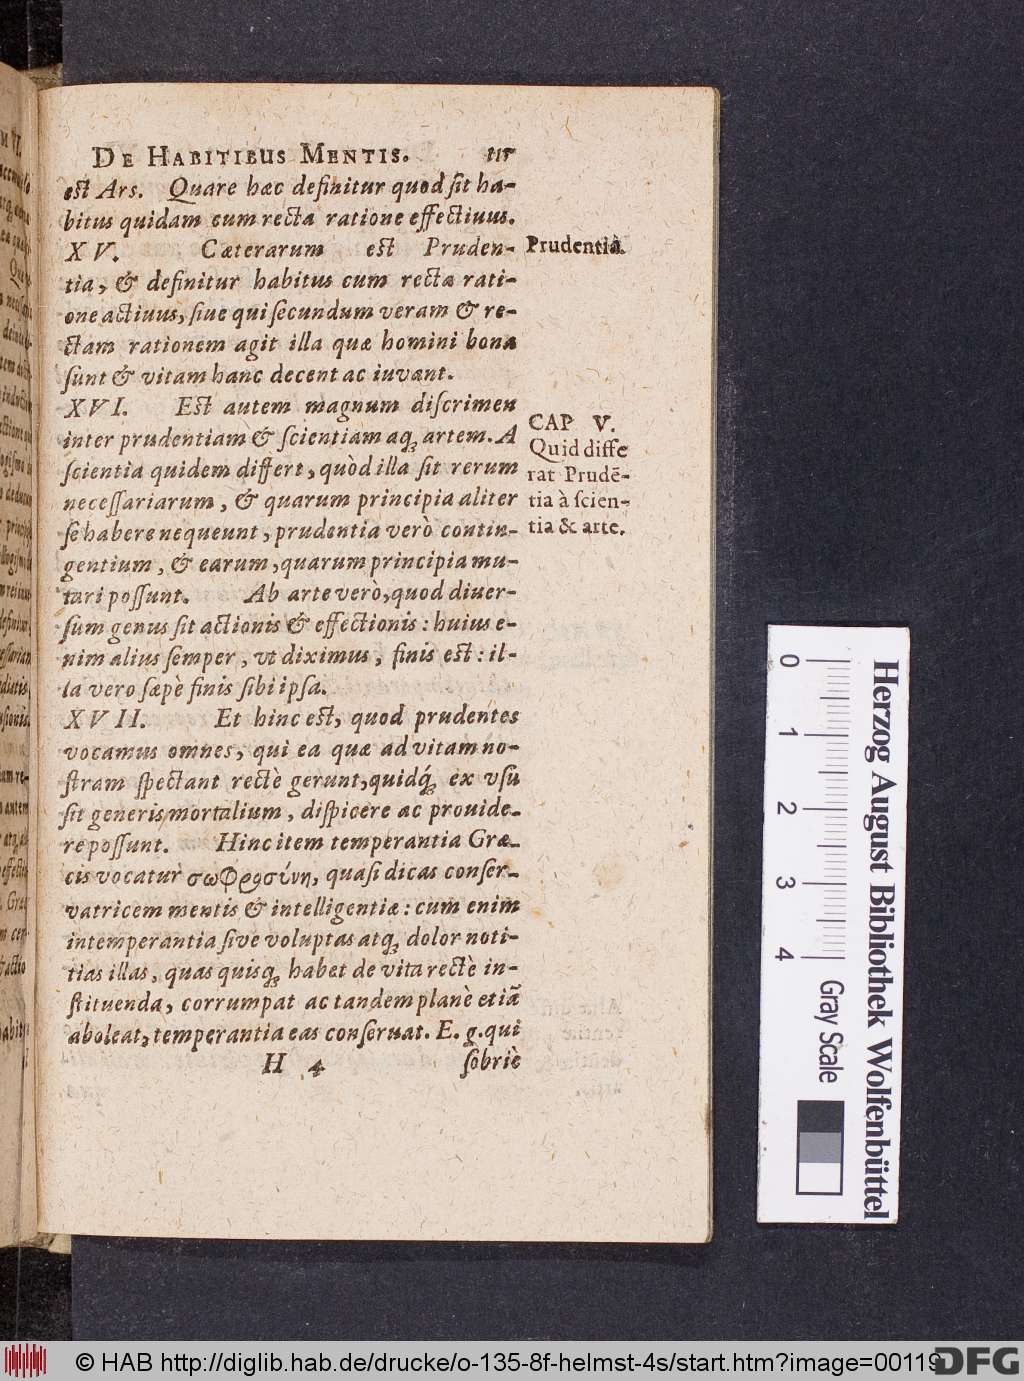 DE HABITIBUS MENTIS. 111
est Ars. Quare hæc definitur quod sit ha-
bitus quidam cum recta ratione effectiuus.
XV. Cæterarum est Pruden-
tia, & definitur habitus cum recta rati-
one actiuus, siue qui secundum veram & re-
ctam rationem agit illa quæ homini bona
sunt & vitam hanc decent ac iuvant.
XVI. Est autem magnum discrimen
inter prudentiam & scientiam aq́; artem. A
scientia quidem differt, quòd illa sit rerum
necessariarum, & quarum principia aliter
se habere nequeunt, prudentia verò contin-
gentium, & earum, quarum principia mu-
tari possunt. Ab arte verò, quod diuer-
sum genus sit actionis & effectionis: huius e-
nim alius semper, vt diximus, finis est: il-
la vero sæpè finis sibi ipsa.
XVII. Et hinc est, quod prudentes
vocamus omnes, qui ea quæ ad vitam no-
stram spectant rectè gerunt, quidq́; ex vsu
sit generis mortalium, dispicere ac prouide-
re possunt. Hinc item temperantia Græ-
cis vocatur σωφροσύνη, quasi dicas conser-
vatricem mentis & intelligentiæ: cum enim
intemperantia sive voluptas atq; dolor noti-
tias illas, quas quisq; habet de vita rectè in-
stituenda, corrumpat ac tandem planè etiã
aboleat, temperantia eas conseruat. E. g. qui
H 4 sobriè
Prudentia.
CAP V.
Quid diffe
rat Prudē-
tia à scien-
tia & arte.
0 1 2 3 4 Gray Scale
Herzog August Bibliothek Wolfenbüttel
© HAB http://diglib.hab.de/drucke/o-135-8f-helmst-4s/start.htm?image=00119
DFG